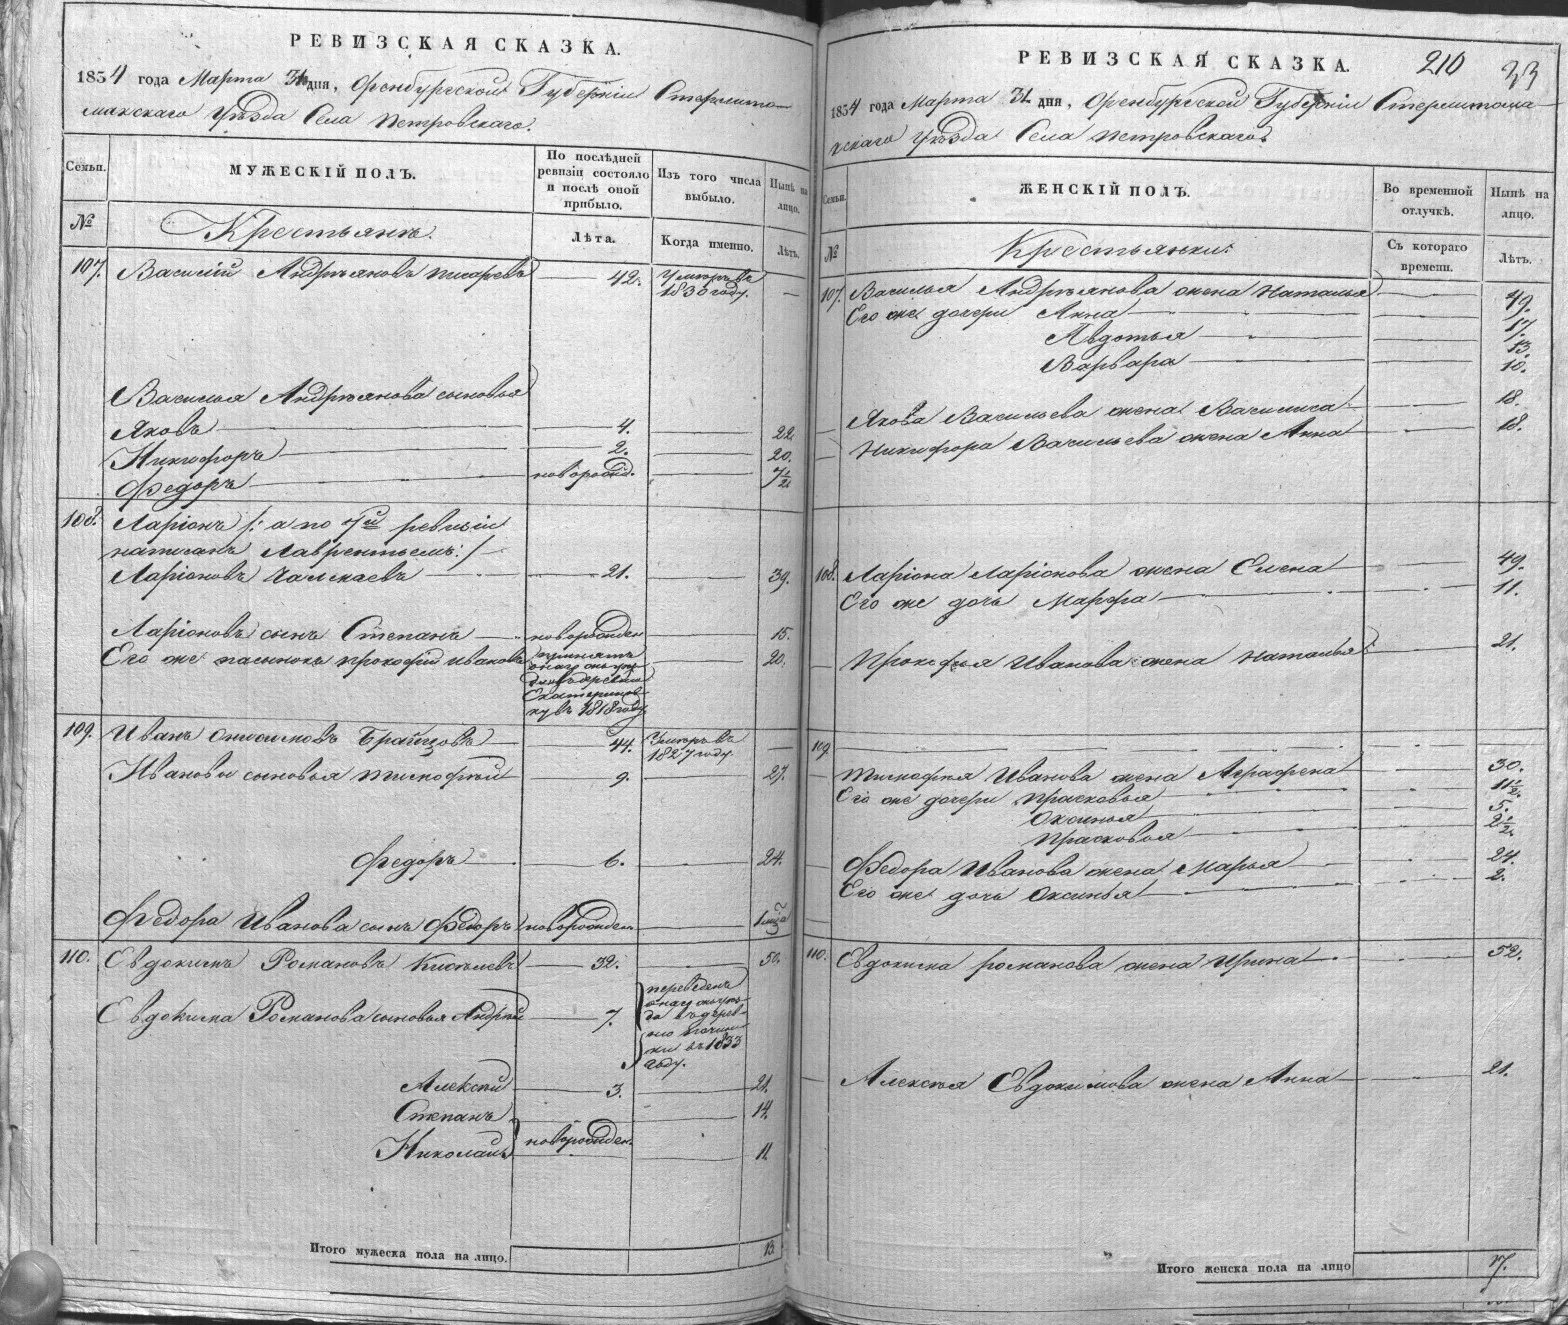 РЕВИЗСКАЯ СКАЗКА.
1834 года Марта 31 дня, Оренбургской Губерніи Стерлита-
макскаго Уѣзда Села Петровскаго.
Семьи.
МУЖЕСКІЙ ПОЛЪ.
По послѣдней ревизіи состояло и послѣ оной прибыло.
Изъ того числа выбыло.
Нынѣ на лицо.
№
Крестьянъ.
Лѣта.
Когда именно.
Лѣтъ.
107. Василій Андрѣяновъ Писаревъ 42. Умеръ въ 1830 году.
Василья Андрѣянова сыновья
Яковъ 4. 22.
Никифоръ 2. 20.
Федоръ новорожд. 7 1/2
108. Ларіонъ /: а по 7й ревизіи
написанъ Лаврентьемъ :/
Ларіоновъ 21. 39.
Ларіоновъ сынъ Степанъ новорожден 15.
Его же пасынокъ Прокофій Ивановъ 20.
въ 1818 году
109. Иванъ 44. Умеръ въ 1827 году.
Ивановы сыновья Тимофѣй 9. 27.
Федоръ 6. 24.
Федора Иванова сынъ Федоръ новорожден.
110. Евдокимъ Романовъ Киселевъ 32. 50.
Евдокима Романова сыновья Андрей 7. переведенъ
въ 1833
году.
Алексѣй 3. 21.
Степанъ 14.
новорожден.
Николай 11.
Итого мужеска пола на лицо. 13.
РЕВИЗСКАЯ СКАЗКА. 210 33
1834 года Марта 31 дня, Оренбургской Губерніи Стерлитама-
кскаго Уѣзда Села Петровскаго.
Семьи.
ЖЕНСКІЙ ПОЛЪ.
Во временной отлучкѣ.
Нынѣ на лицо.
№
Крестьянки.
Съ котораго времени.
Лѣтъ.
107. Василья Андрѣянова жена Наталья 49.
Его же дочери Анна 17.
Авдотья 13.
Варвара 10.
Якова Васильева жена Василиса 18.
Никифора Васильева жена Анна 18.
108. Ларіона Ларіонова жена Елена 49.
Его же дочь Марфа 11.
Прокофья Иванова жена Наталья 21.
109.
Тимофея Иванова жена Аграфена 30.
Его же дочери Прасковья 11 1/2.
Оксинья 5.
Прасковья 2 1/2.
Федора Иванова жена Марья 24.
Его же дочь Оксинья 2.
110. Евдокима Романова жена Ирина 52.
Алексѣя Евдокимова жена Анна 21.
Итого женска пола на лицо 17.